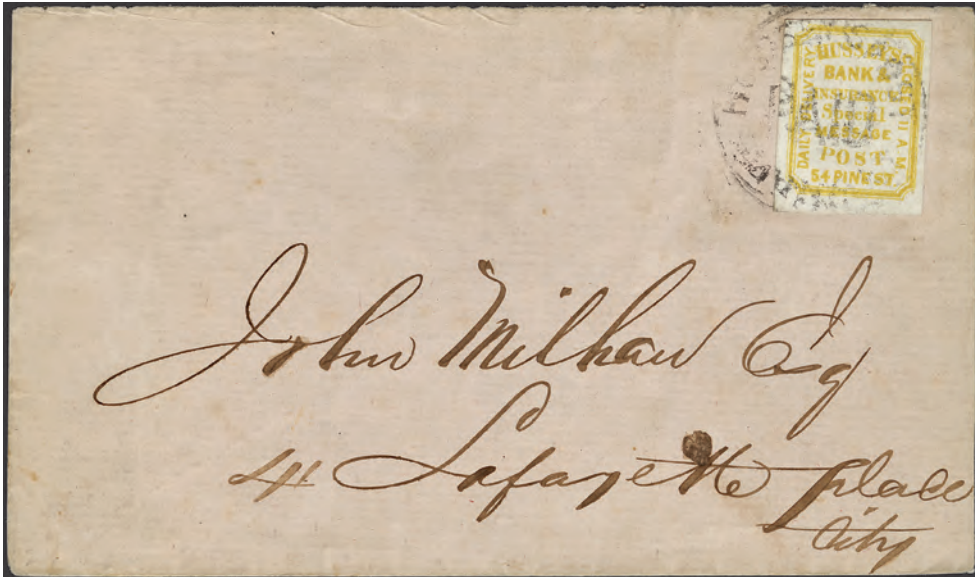 HUSSEY'S
BANK &
INSURANCE
Special
MESSAGE
POST
54 PINE ST.
DAILY DELIVERY
CLOSED 11 A M
John Milhau Esq
41 Lafayette Place
City